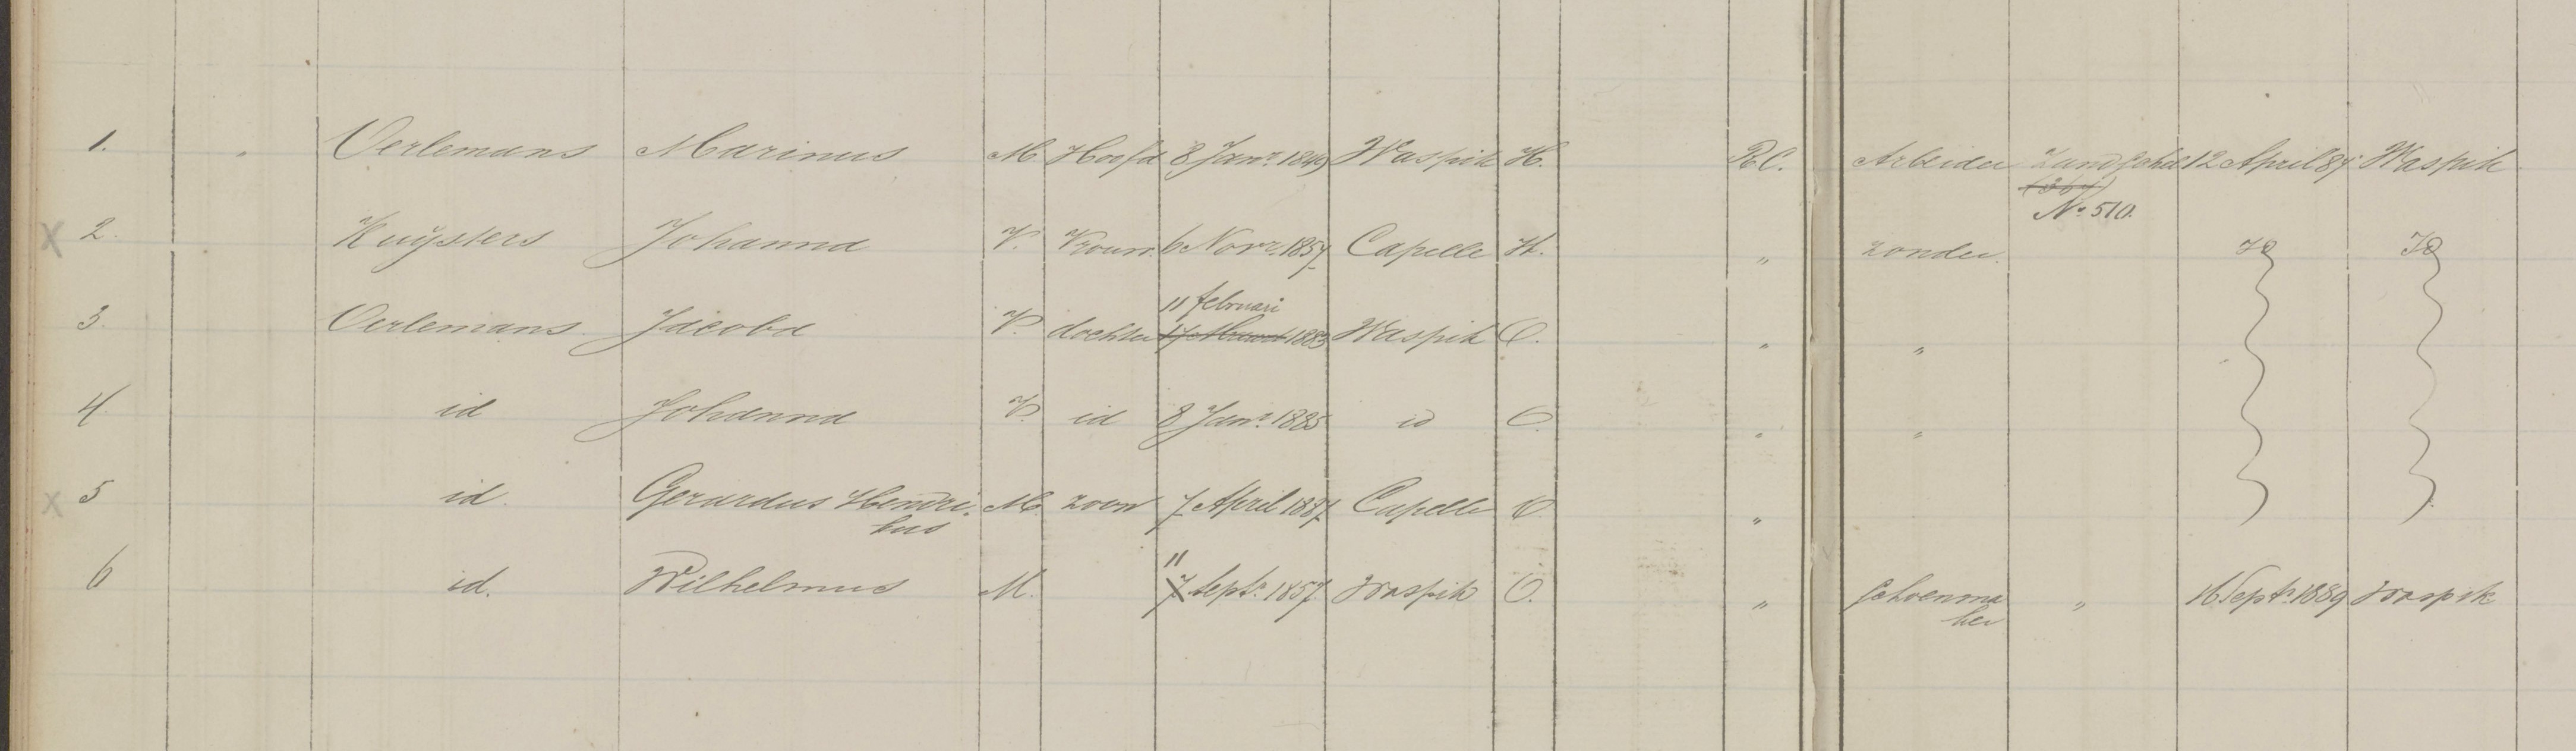 1. " Oerlemans Marinus M. Hoofd 8 Janr. 1849 Waspik H. R.C. Arbeider Zandschel 12 April 87 Waspik
(367)
No. 510.
X 2. Kuÿsters Johanna V. Vrouw. 6 Novr. 1857 Capelle H. " zonder. Id Id
11 februari
3. Oerlemans Jacoba V. dochter 17 Maart 1883 Waspik O. " "
4. id Johanna V. id 8 Janr. 1885 id O. " "
X 5 id. Gerardus Hendri- M. zoon 7 April 1887 Capelle O. "
kus
11
6 id. Wilhelmus M. 7 Septr. 1857 Waspik O. " Schoenma " 16 Septr. 1889 Waspik
ker